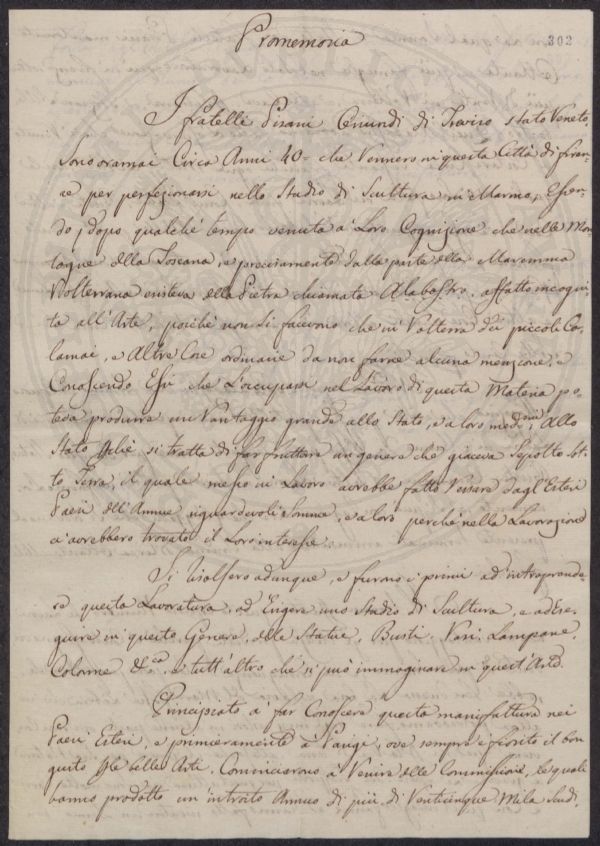 Promemoria
302
I fratelli Pisani Oriundi di Treviso stato Veneto,
Sono oramai Circa Anni 40= che Vennero in questa Città di firen-
ze per perfezionarsi nello Studio di Scultura in Marmo; Essen-
do, dopo qualche tempo venuta a Loro Cognizione che nelle Mon-
tagne della Toscana, e precisamente dalla parte della Maremma
Volterrana esisteva della Pietra chiamata Alabastro, affatto incogni-
ta all'Arte, poiché non si facevono che in Volterra dei piccoli Ca-
lamai, e Altre Cose ordinarie da non farne alcuna menzione, e
Conoscendo Essi che L'occuparsi nel Lavoro di questa Materia po-
teva produrre un Vantaggio grande allo Stato, e a loro medmi, Allo
Stato Ylie si tratta di far fruttare un genere che giaceva Sepolto Sot-
to Terra, il quale messo in Lavoro avrebbe fatto Versare dagl'Esteri
Paesi dell'Annue riguardevoli Somme, e a loro perché nella Lavorazione
ci avrebbero trovato il Loro interesse.
Si risolsero adunque, e furono i primi ad intraprende-
re questa Lavoratura, ed Erigere uno Studio di Scultura, e ad Ese-
guire in questo Genere, delle Statue, Busti, Vasi, Lampane,
Colonne &ca. e tutt'altro che si può immaginare in quest'Arte.
Principiato a far Conoscere questa manifattura nei
Paesi Esteri, e primieramente a Parigi, ove sempre è fiorito il bon
gusto delle belle Arti, Cominciarono a Venire delle Commissioni, le quali
hanno prodotto un introito Annuo di più di Venticinque Mila Scudi,